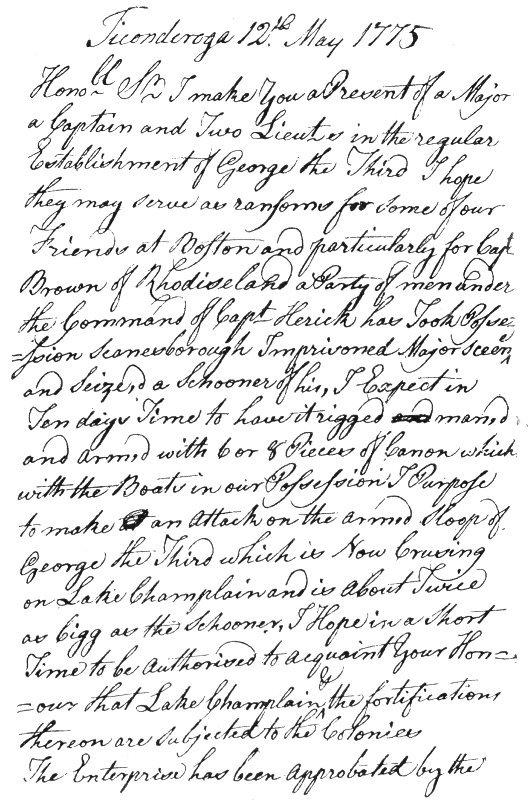 Ticonderoga 12.th May 1775
Honobll Sr I make You a Present of a Major
a Captain and Two Lieuts in the regular
Establishment of George the Third I hope
they may serve as ransoms for some of our
Friends at Boston and particularly for Capt
Brown of Rhodiseland a Party of men under
the Command of Capt Herick has Took Posse=
=ssion Scanesborough Imprisoned Major Sceen
and Seize,d a Schooner of his, I Expect in
Ten days Time to have it rigged and man,d
and arm,d with 6 or 8 Pieces of Canon which
with the Boats in our Possession I Purpose
to make an Attack on the arm,d Sloop of
George the Third which is Now Crusing
on Lake Champlain and is about Twice
as bigg as the Schooner, I Hope in a Short
Time to be authorised to acquaint Your Hon=
=our that Lake Champlain & the fortifications
thereon are subjected to the Colonies
The Enterprise has been approbated by the